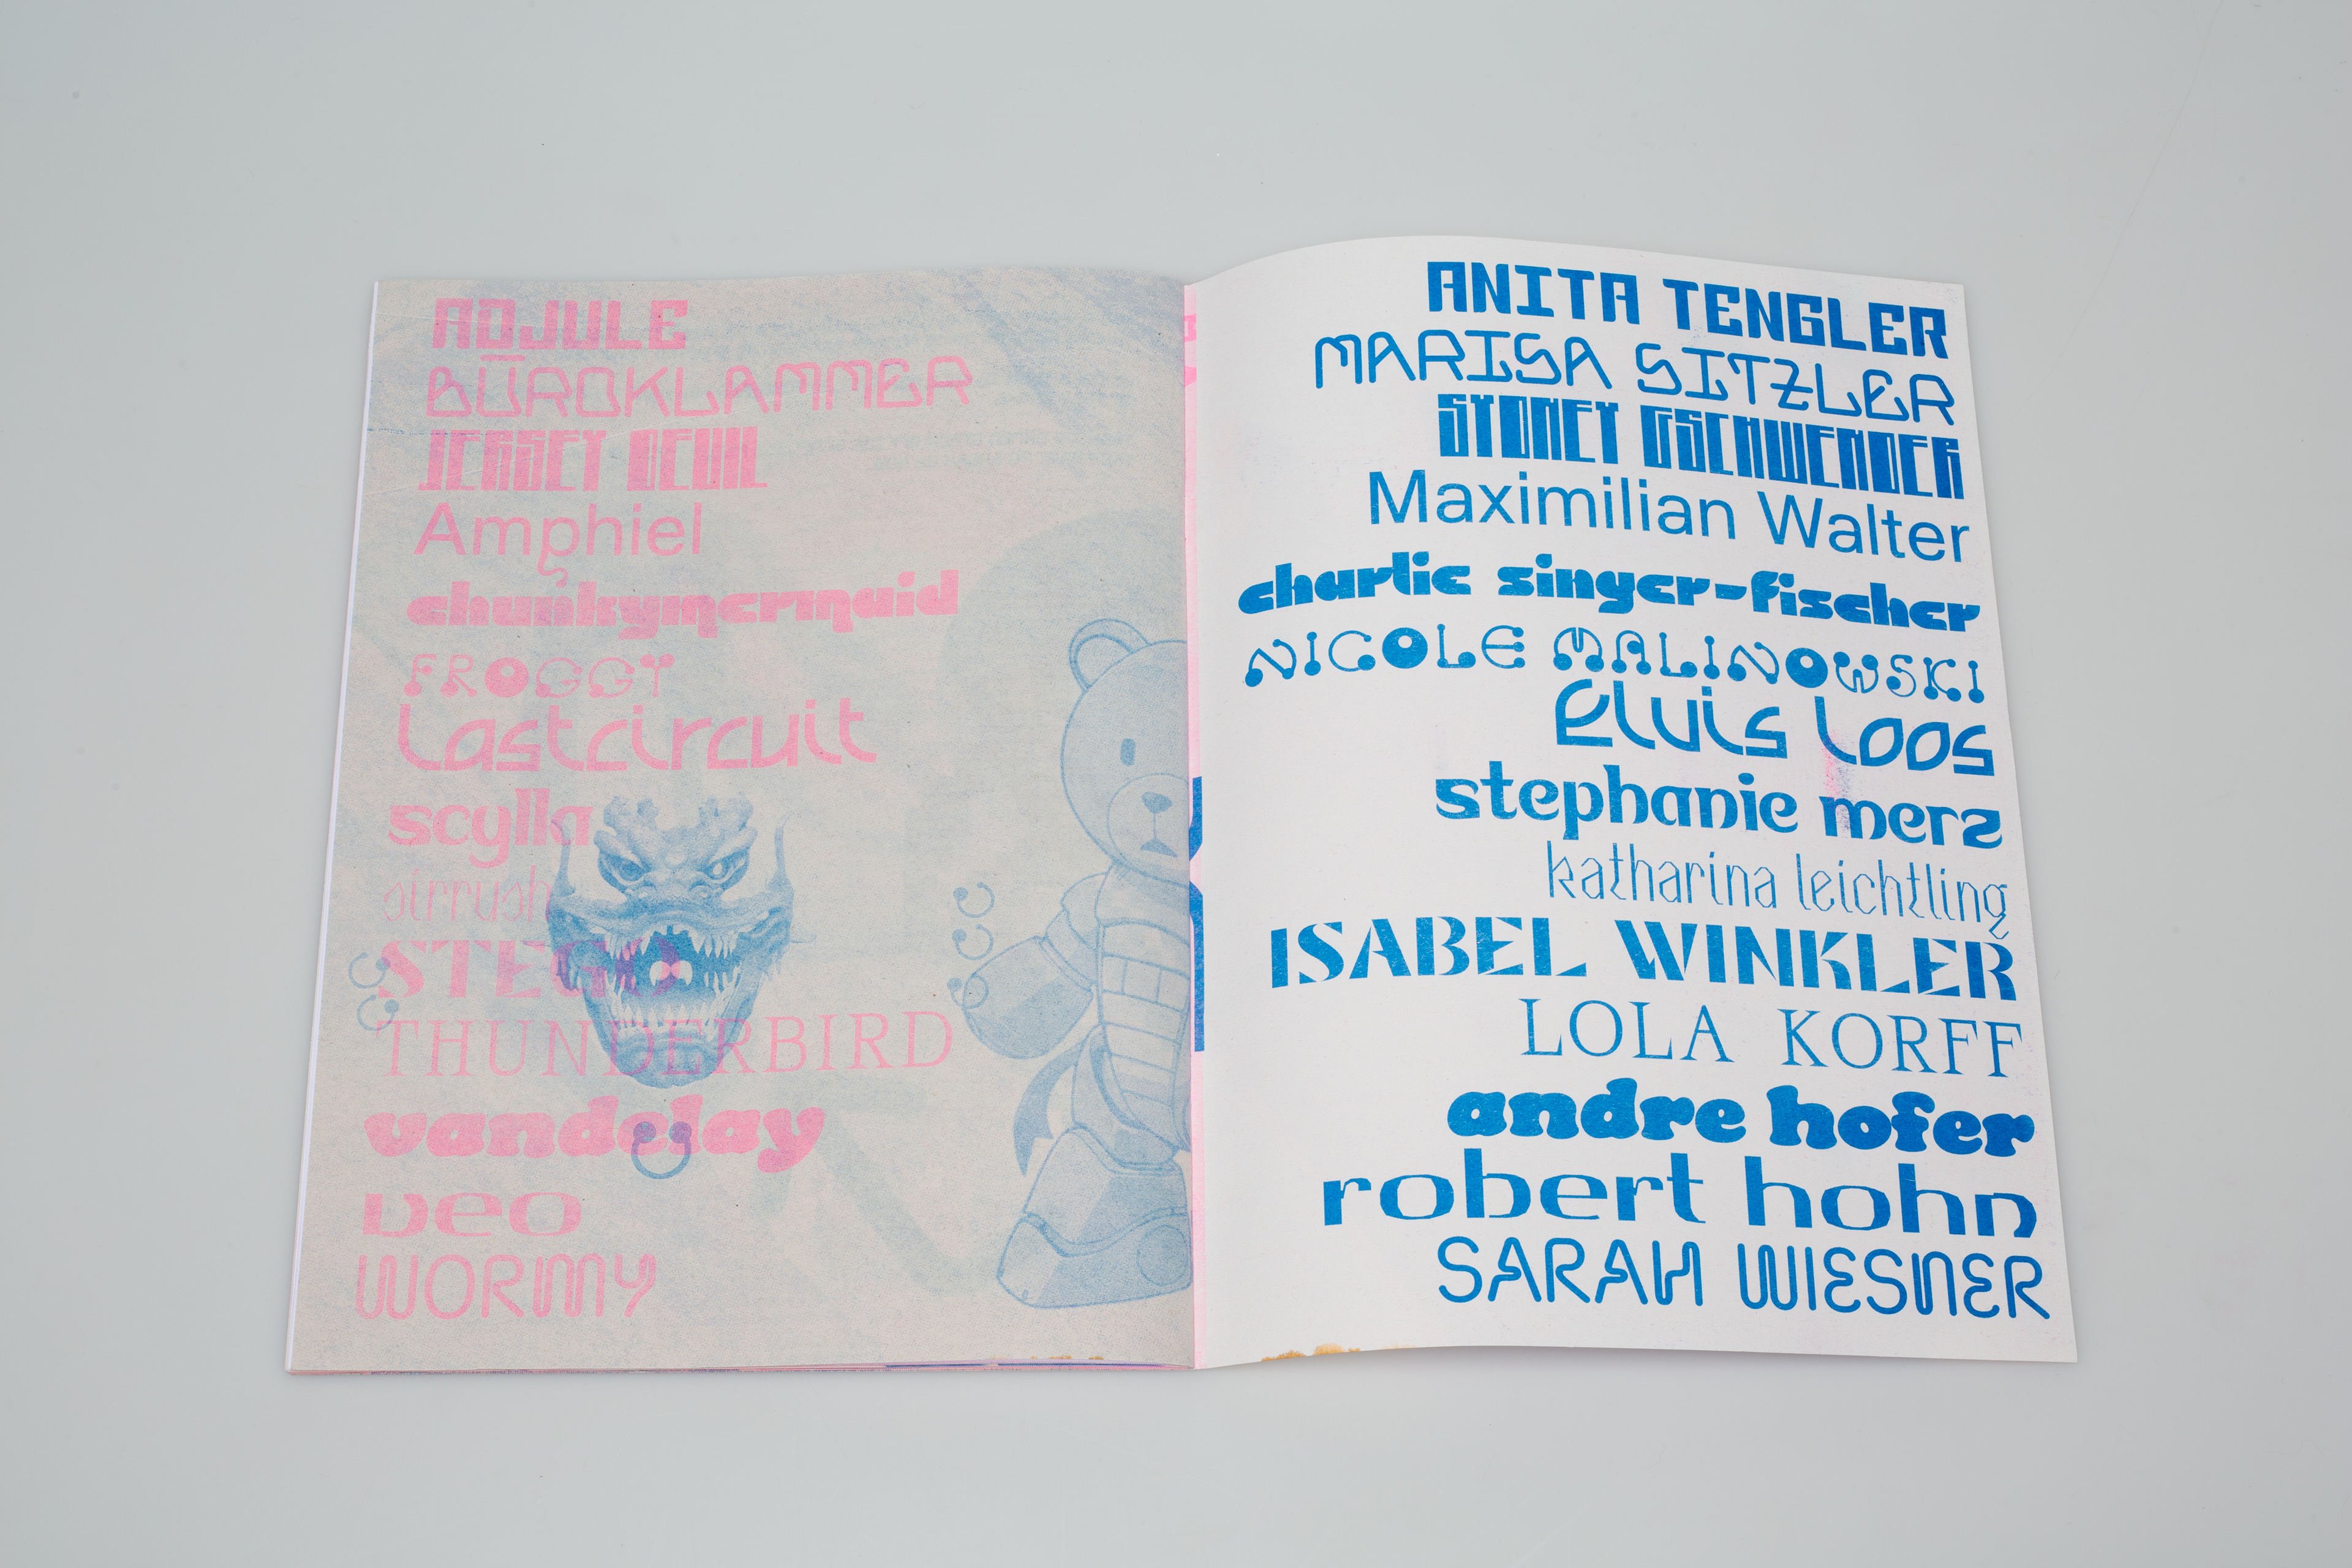 MOJULE
BÜROKLAMMER
JERSEY DEVIL
Amphiel
chunkymermaid
FROGGY
Lastcircuit
scylla
sirrush
STEGO
THUNDERBIRD
vandelay
Veo
WORMY
ANITA TENGLER
MARISA SITZLER
SYDNEY GSCHWENDER
Maximilian Walter
charlie singer-fischer
NICOLE MALINOWSKI
Elvis Loos
stephanie merz
katharina leichtling
ISABEL WINKLER
LOLA KORFF
andre hofer
robert hohn
SARAH WIESNER